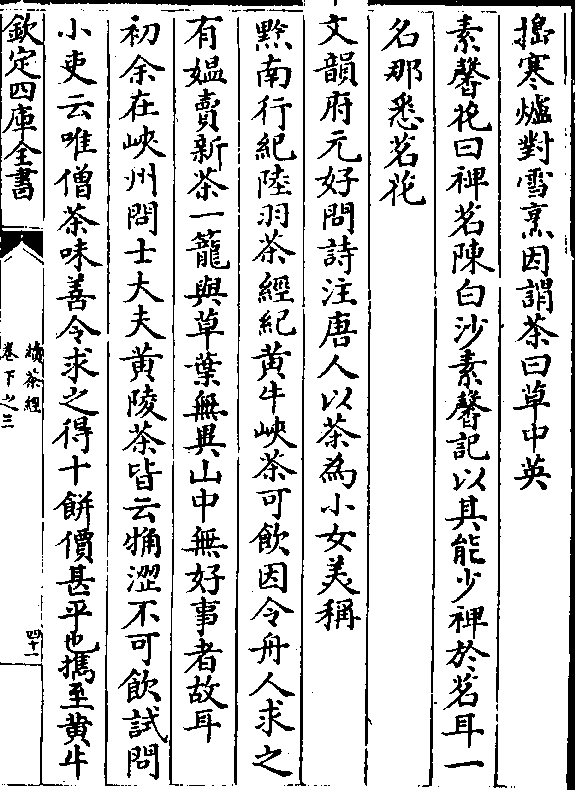 搗寒爐對雪烹因謂茶曰草中英
素馨花曰裨茗陳白沙素馨記以其能少裨於茗耳一
名那悉茗花
文韻府元好問詩注唐人以茶為小女美稱
黔南行紀陸羽茶經紀黄牛峽茶可飲因令舟人求之
有媪賣新茶一籠與草葉無異山中無好事者故耳
初余在峽州問士大夫黄陵茶皆云觕澀不可飲試問
小吏云唯僧茶味善令求之得十餅價甚平也攜至黄牛
欽定四庫全書
續茶經
卷下之三
四十一